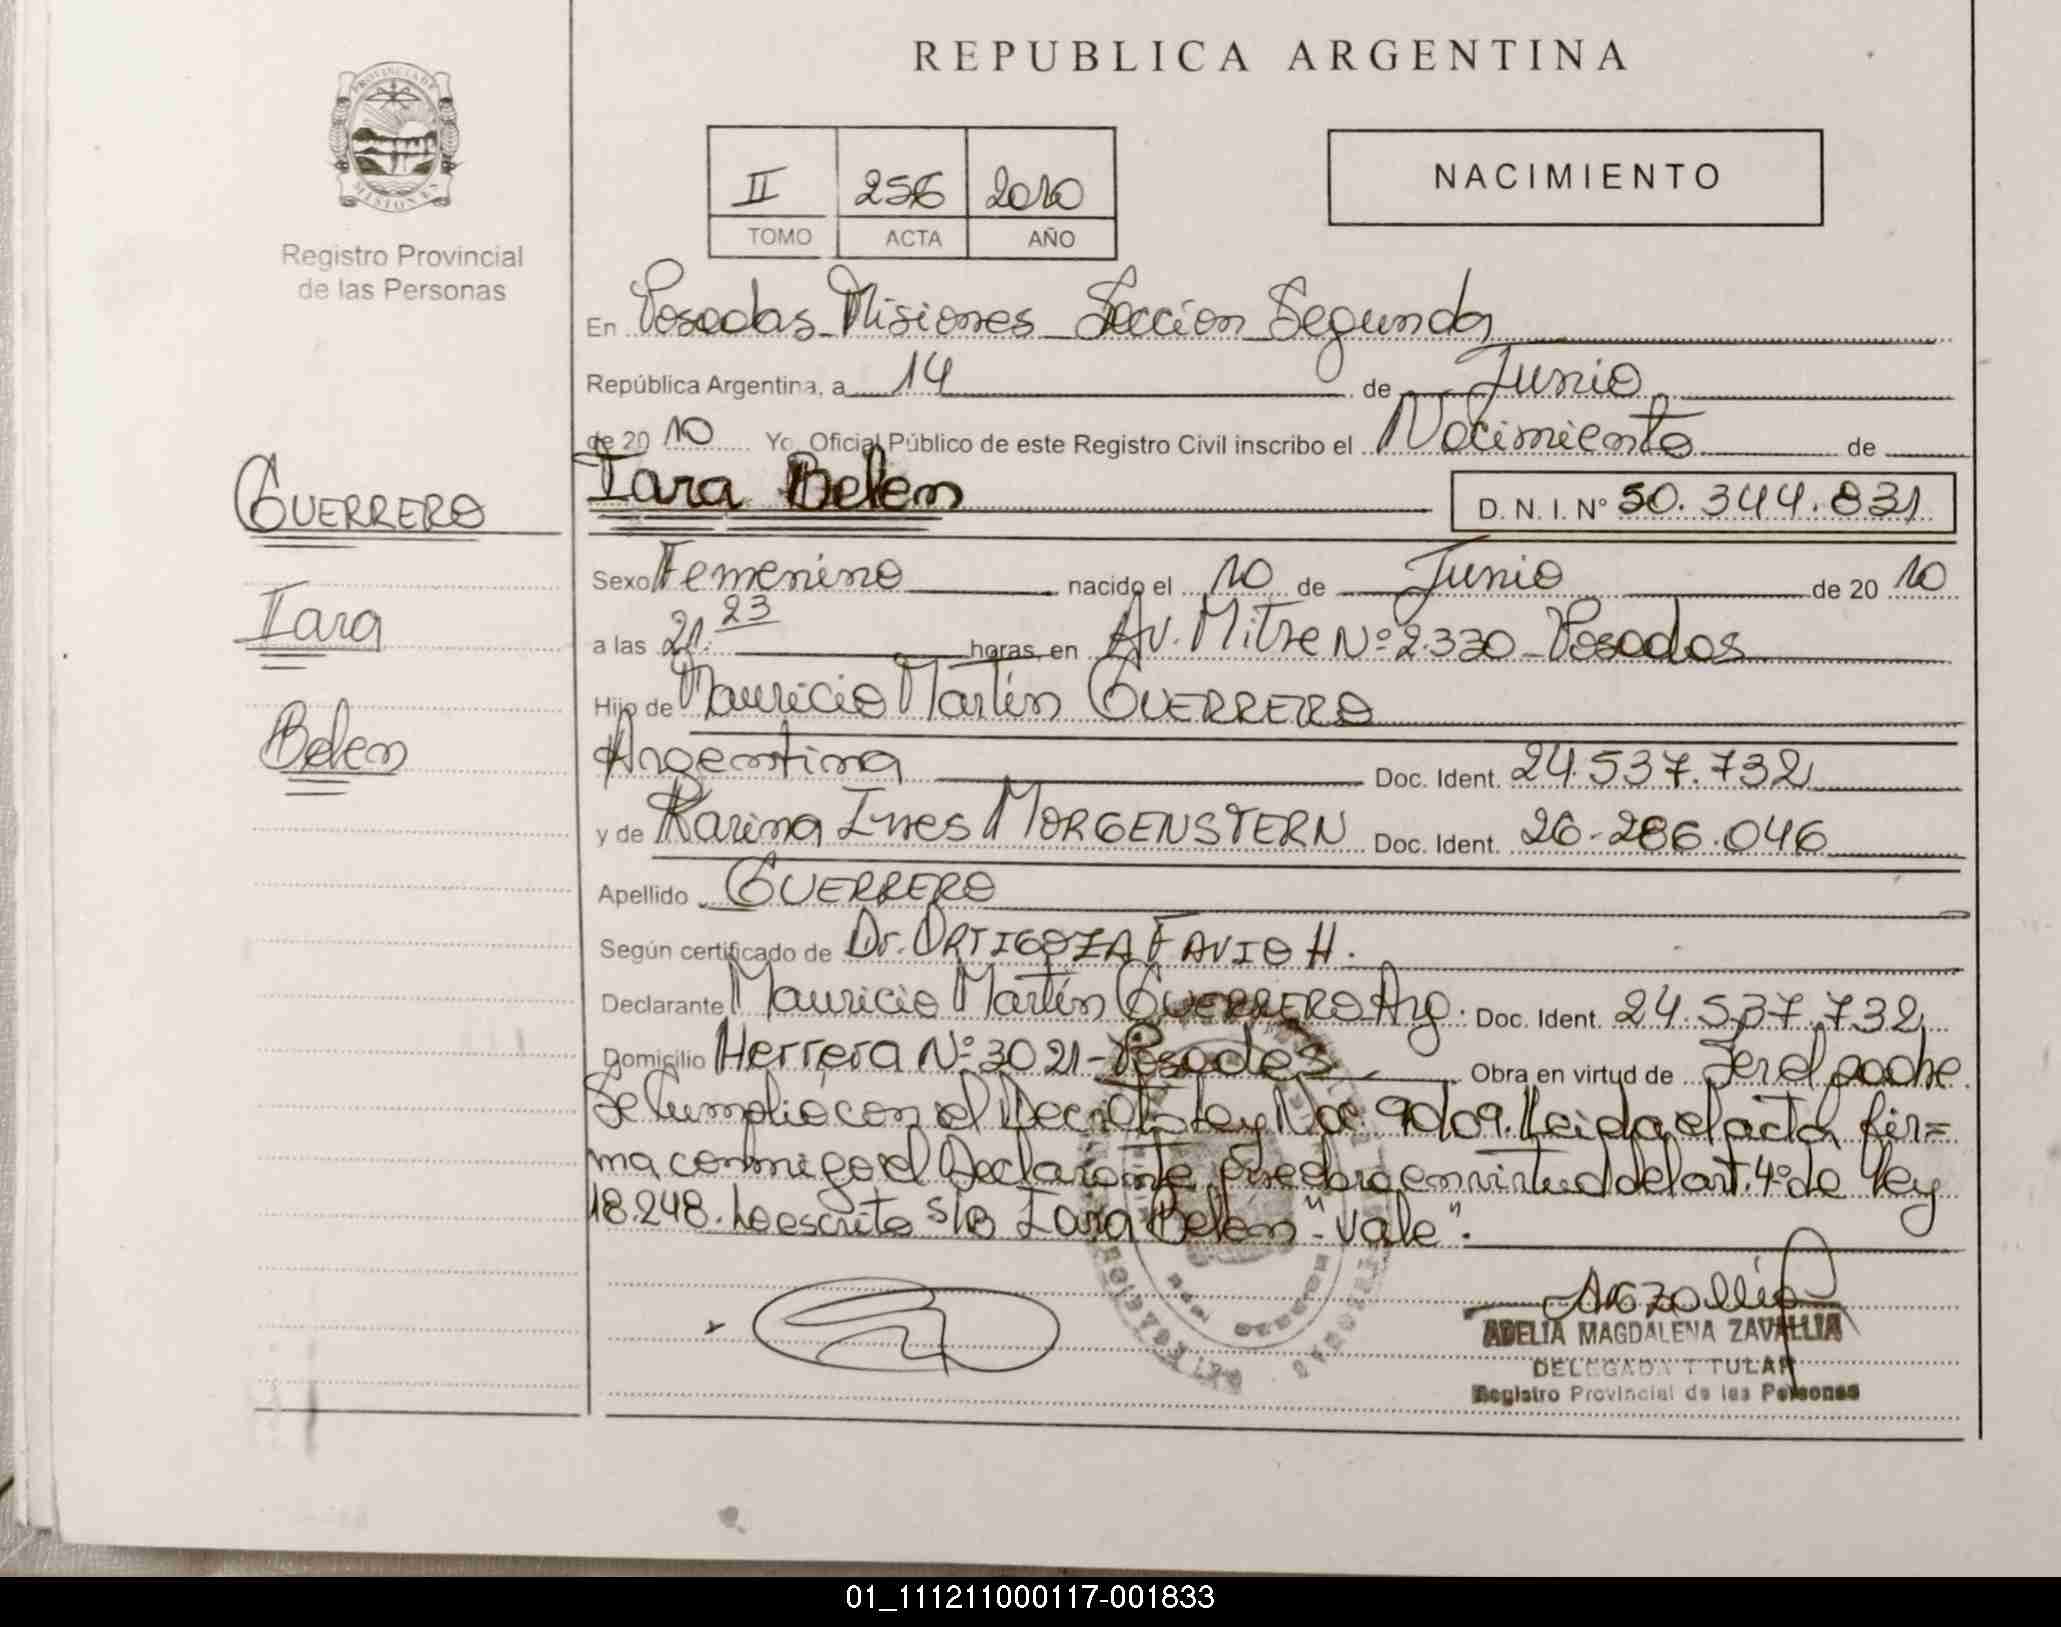 REPUBLICA ARGENTINA
PROVINCIA DE
MISIONES
Registro Provincial
de las Personas
II 256 2010
TOMO ACTA AÑO
NACIMIENTO
En Posadas Misiones Sección Segunda
República Argentina, a 14 de Junio
de 2010 Yo, Oficial Público de este Registro Civil inscribo el Nacimiento de
GUERRERO
Iara
Belen
Iara Belen D. N. I. Nº 50.344.831
Sexo Femenino nacido el 10 de Junio de 2010
a las 21:23 horas, en Av. Mitre Nº 2.330 Posadas
Hijo de Mauricio Martín GUERRERO
Argentina Doc. Ident. 24.537.732
y de Karina Ines MORGENSTERN Doc. Ident. 26.286.046
Apellido GUERRERO
Según certificado de Dr. ORTIGOZA FAVIO H.
Declarante Mauricio Martín GUERRERO Arg. Doc. Ident. 24.537.732
Domicilio Herrera Nº 3021 - Posadas Obra en virtud de Ser el padre.
Se Cumplio con el Decreto Ley Nac. Leida el acta fir=
ma conmigo el Declarante en virtud del art. 4º de ley
18.248. Lo escrito s/b Iara Belen - "Vale".
ADELIA MAGDALENA ZAVALLIA
DELEGADA TITULAR
Registro Provincial de las Personas
01_111211000117-001833